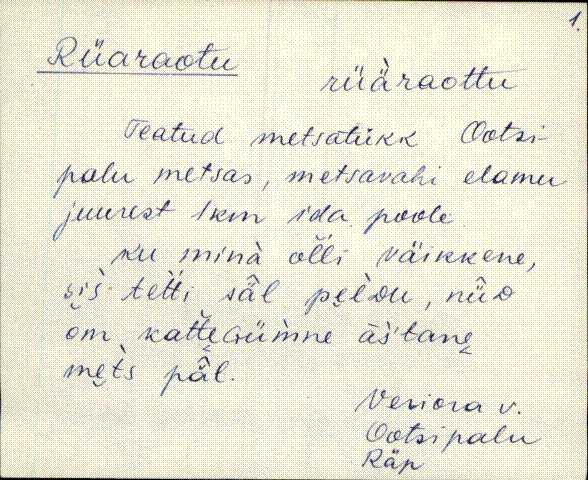 1.
Rüaraotu
rüàraottu
Teatud metsatükk Ootsi-
palu metsas, metsavahi elamu
juurest 1km ida poole.
ku minà olli väikkene,
sìs tetti säl pe̬ldu, nüD
om katte̬Güm̀ne āśtane̬
me̬t̀s pǟl.
Veriora v.
Ootsipalu
Räp